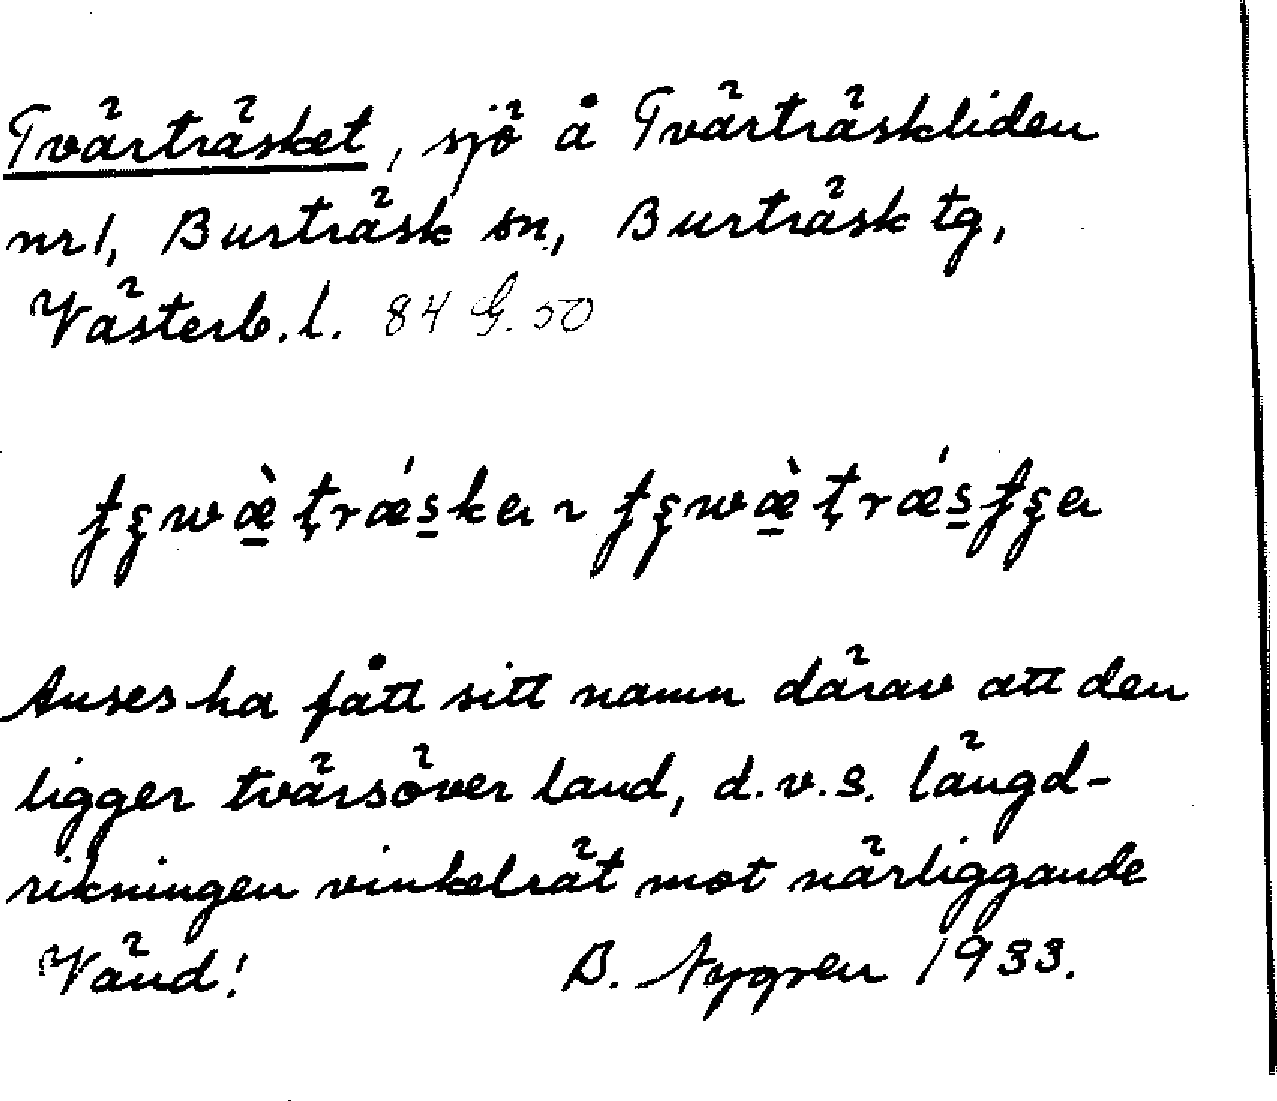 Tvärträsket, sjö å Tvärträskliden
nr 1, Burträsk sn, Burträsk tg,
Västerb. l. 84 G. 50
Anses ha fått sitt namn därav att den
ligger tvärsöver land, d.v.s. längd-
rikningen vinkelrät mot närliggande
Vänd! B. Nygren 1933.